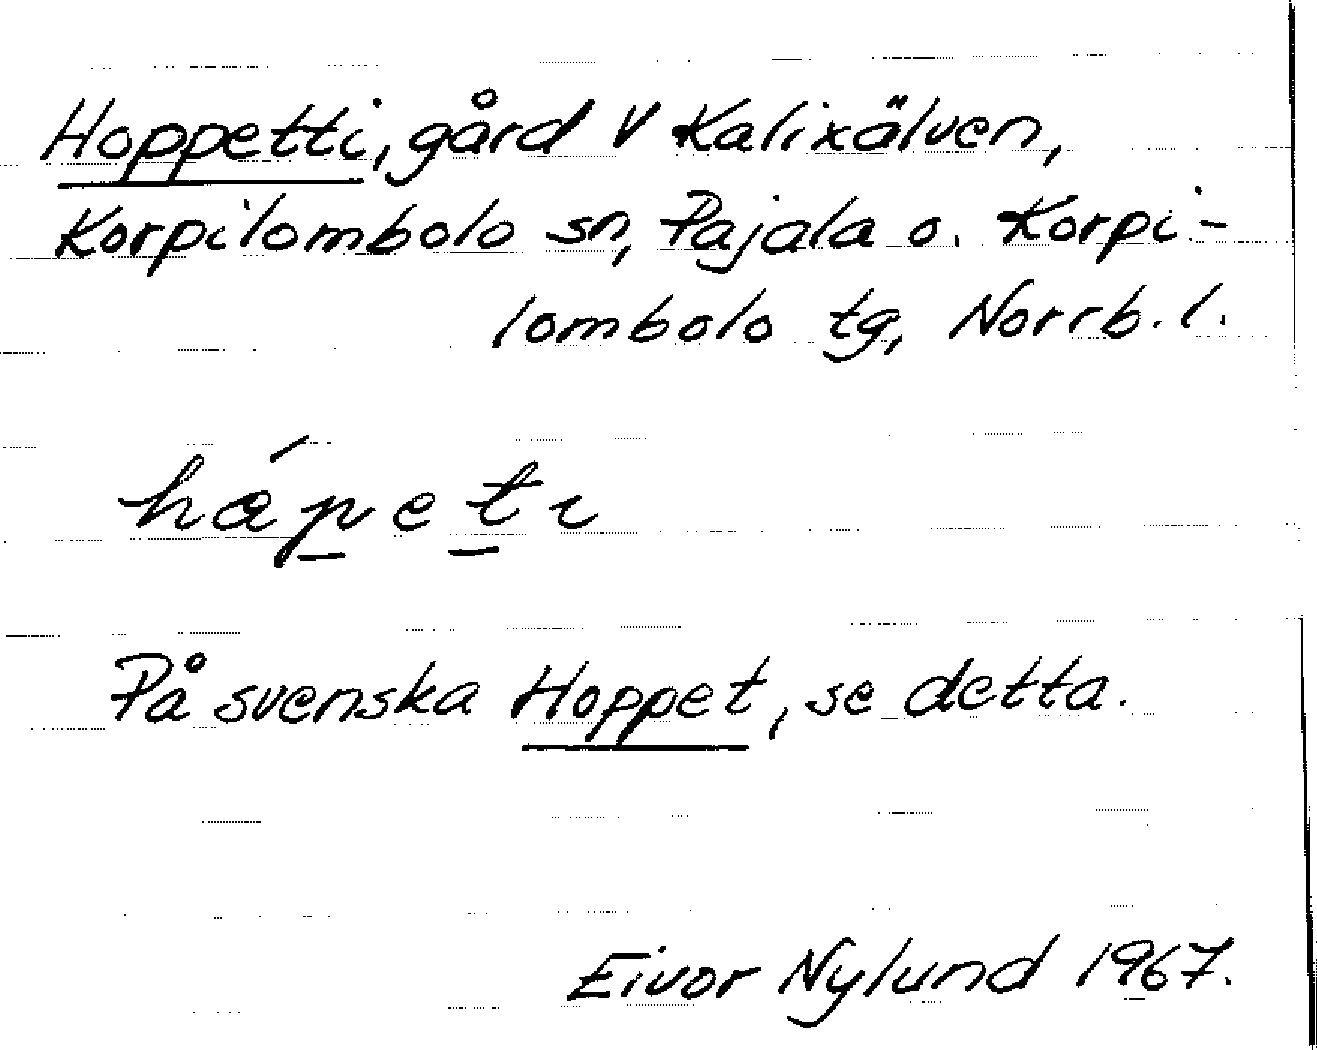 Hoppetti, gård V Kalixälven,
Korpilombolo sn, Pajala o. Korpi-
lombolo tg, Norrb. l.
hápeti
På svenska Hoppet, se detta.
Eivor Nylund 1967.